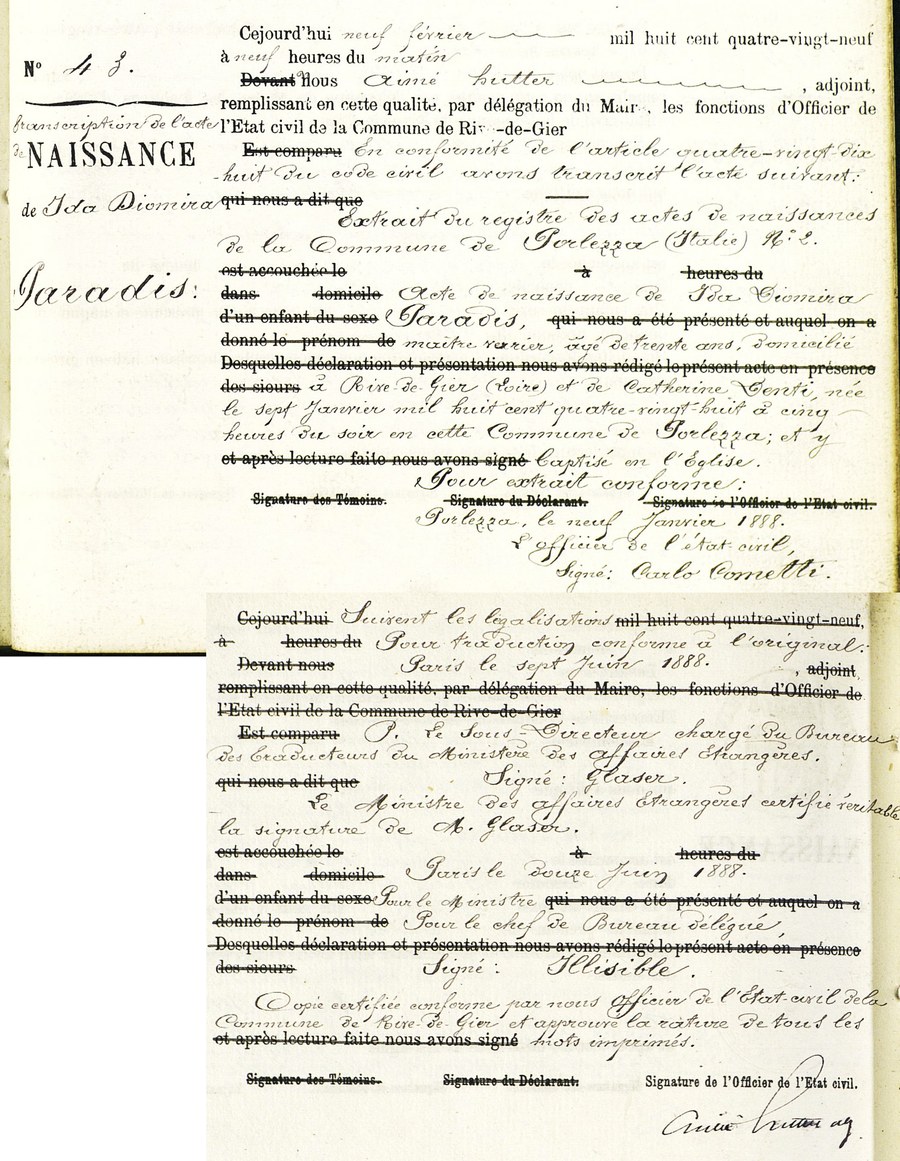 Nº 43.
transcription de l'acte
de NAISSANCE
de Ida Diomira
Paradis:
Cejourd'hui neuf février mil huit cent quatre-vingt-neuf
à neuf heures du matin
Devant Nous Aimé hutter, adjoint,
remplissant en cette qualité, par délégation du Maire, les fonctions d'Officier de
l'Etat civil de la Commune de Rive-de-Gier
Est comparu En conformité de l'article quatre-vingt-dix
-huit du code civil avons transcrit l'acte suivant:
qui nous a dit que
Extrait du registre des actes de naissances
de la Commune de Porlezza (Italie) Nº 2.
est accouchée le à heures du
dans domicile Acte de naissance de Ida Diomira
d'un enfant du sexe Paradis, qui nous a été présenté et auquel on a
donné le prénom de maître verrier, âgé de trente ans, domicilié
Desquelles déclaration et présentation nous avons rédigé le présent acte en présence
des sieurs à Rive-de-Gier (Loire) et de Catherine Denti, née
le sept Janvier mil huit cent quatre-vingt-huit à cinq
heures du soir en cette Commune de Porlezza; et y
et après lecture faite nous avons signé baptisé en l'Eglise.
Pour extrait conforme:
Signature des Témoins. Signature du Déclarant. Signature de l'Officier de l'Etat civil.
Porlezza, le neuf Janvier 1888.
L'officier de l'état-civil,
Signé: Carlo Cometti.
Cejourd'hui Suivent les légalisations mil huit cent quatre-vingt-neuf,
à heures du Pour traduction conforme à l'original:
Devant nous Paris le sept Juin 1888. , adjoint
remplissant en cette qualité, par délégation du Maire, les fonctions d'Officier de
l'Etat civil de la Commune de Rive-de-Gier
Est comparu P. Le Sous-Directeur chargé du Bureau
des traducteurs du Ministère des affaires Etrangères.
qui nous a dit que Signé: Glaser.
Le Ministre des affaires Etrangères certifie véritable
la signature de M. Glaser.
est accouchée le à heures du
dans domicile Paris le douze Juin 1888.
d'un enfant du sexe Pour le Ministre qui nous a été présenté et auquel on a
donné le prénom de Pour le chef de Bureau délégué,
Desquelles déclaration et présentation nous avons rédigé le présent acte en présence
des sieurs Signé: Illisible.
Copie certifiée conforme par nous Officier de l'Etat-civil de la
Commune de Rive-de-Gier et approuvé la rature de tous les
et après lecture faite nous avons signé mots imprimés.
Signature des Témoins. Signature du Déclarant. Signature de l'Officier de l'Etat civil.
Aimé hutter adj.